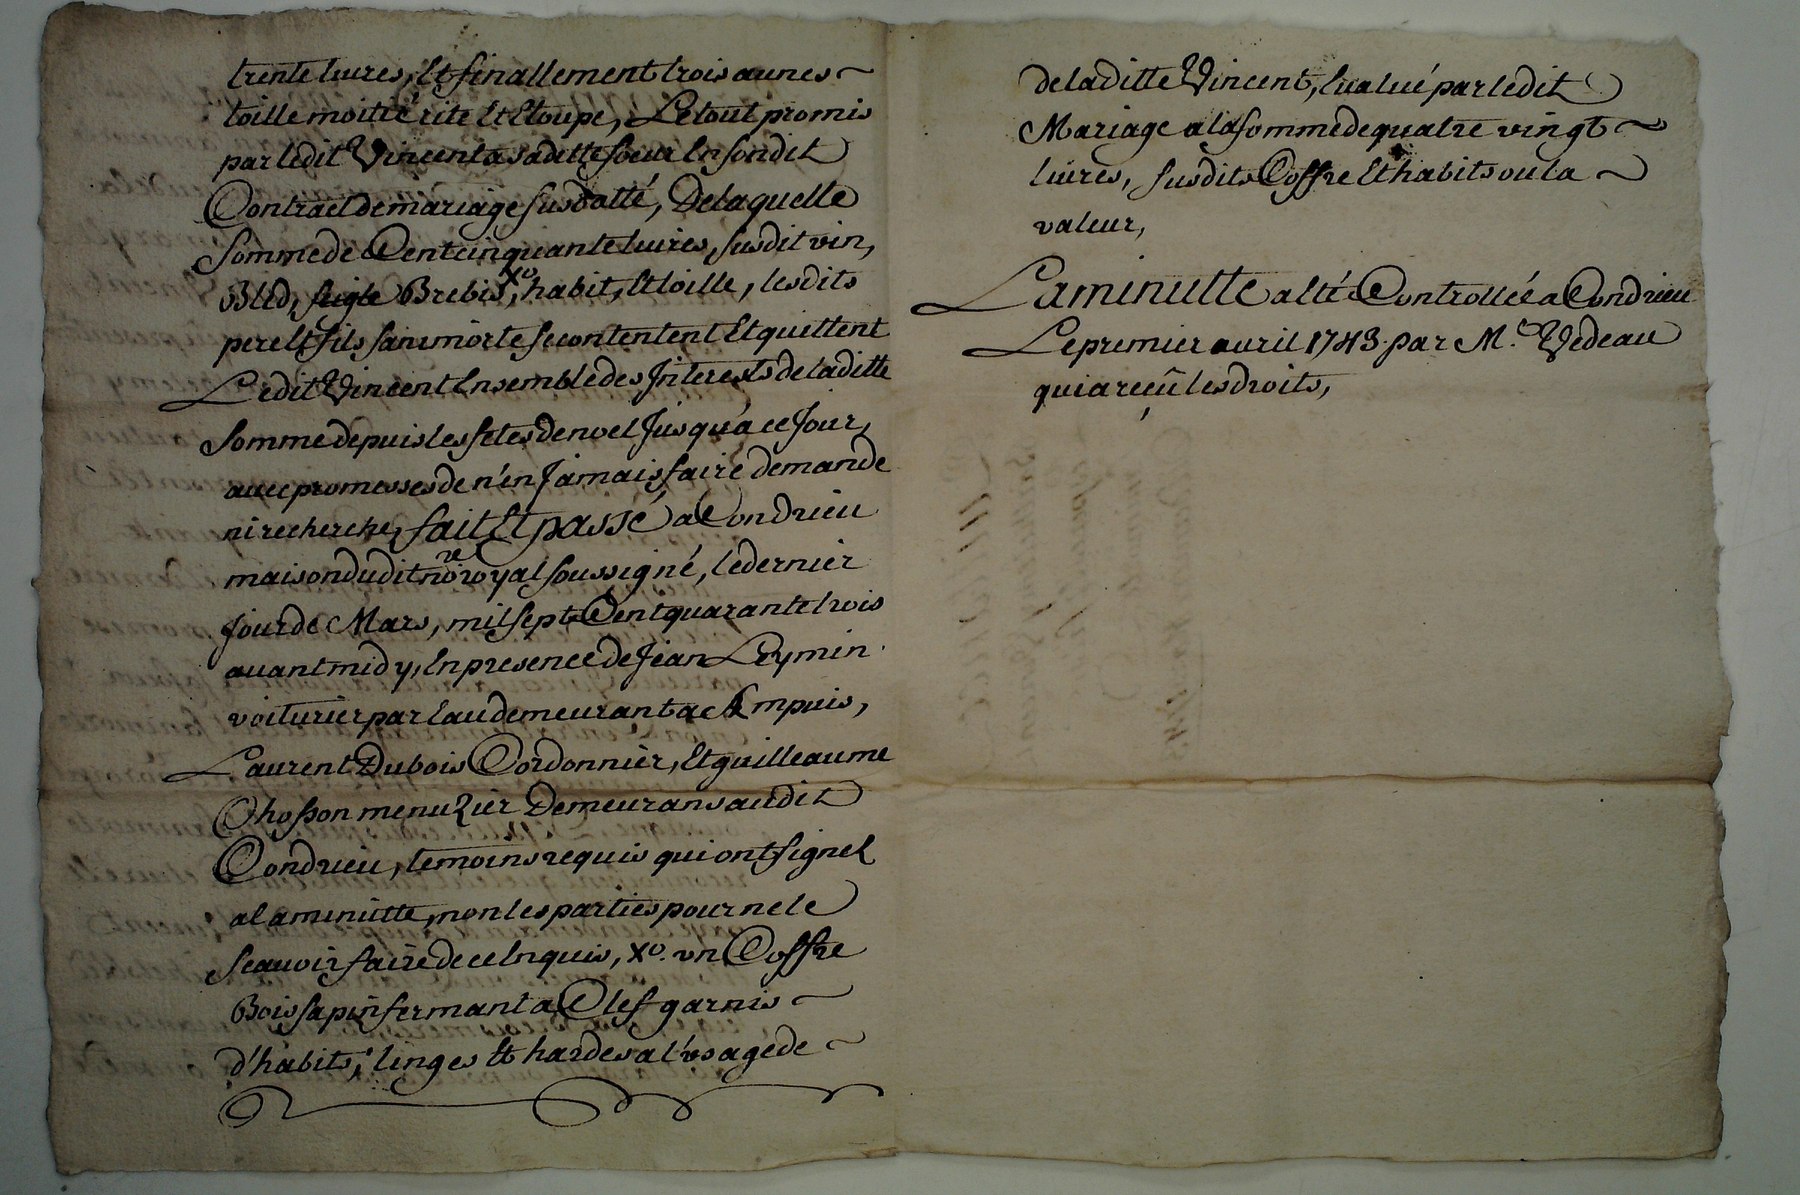 trente livres, Et finallement trois aunes
toille moitié rite Et Etoupe, Le tout promis
par ledit Vincent a sa ditte soeur En son dit
Contract de mariage susdatté, De laquelle
somme de Cent cinquante livres, susdit vin,
Bled, seigle Brebis, Xo, habit, Et toille, lesdits
pere Et fils sanimorte se contentent Et quittent
Ledit Vincent Ensemble des Interests de laditte
somme depuis les fetes de noel Jusqu'a ce Jour,
avec promesses de n'en Jamais faire demande
ni recherche, fait Et passé a Condrieu
maison dudit nore royal soussigné, le dernier
Jour de Mars, mil sept Cent quarante trois
avant midy, En presence de Jean Leymin
voiturier par Eau demeurant a Ampuis,
Laurent Dubois Cordonnier, Et guilleaume
Chosson menuzier Demeurans audit
Condrieu, temoins requis qui ont signez
a la minutte, non les parties pour ne le
scavoir faire de ce Enquis, Xo. un Coffre
Bois sapin fermant a Clef garnis
d'habits, linges Et hardes a l'usage de
de la ditte Vincent, Evalué par ledit
Mariage a la somme de quatre vingt
livres, susdits Coffre Et habits ou la
valeur,
La minutte a Eté Controllée a Condrieu
Le premier avril 1743. par Mr. Vedeau
qui a reçû les droits,